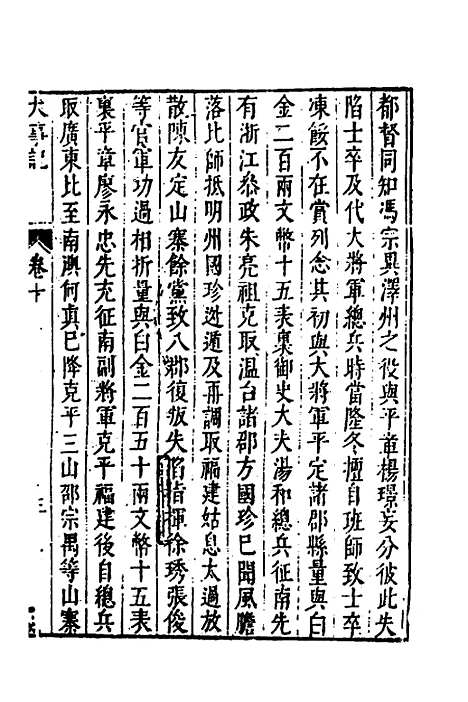 都督同知馮宗異澤州之役與平章楊璟妄分彼此失
陷士卒及代大將軍總兵時當隆冬擅自班師致士卒
凍餒不在賞列念其初與大將軍平定諸郡縣量與白
金二百兩文幣十五表裏御史大夫湯和總兵征南先
有浙江叅政朱亮祖克取温台諸郡方國珍巳聞風膽
落比師抵明州國珍迯遁及再調取福建姑息太過放
散陳友定山寨餘黨致八郡復叛失陷指揮徐琇張俊
等官軍功過相折量與白金二百五十兩文幣十五表
裏平章廖永忠先充征南副將軍克平福建後自總兵
取廣東比至南澳何眞巳降克平三山邵宗愚等山寨
大事記
卷十
三